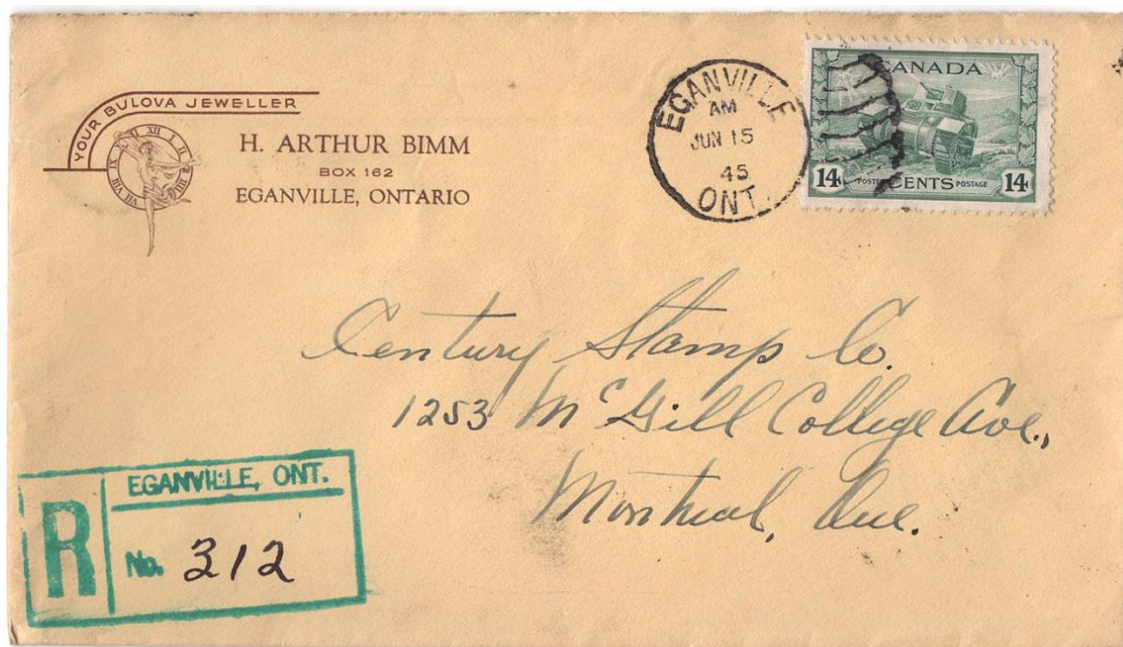 YOUR BULOVA JEWELLER
XII I II III IIII VI VII VIII IX
H. ARTHUR BIMM
BOX 162
EGANVILLE, ONTARIO
EGANVILLE
AM
JUN 15
45
ONT.
CANADA
14 POSTES CENTS POSTAGE 14
Century Stamp Co.
1253 McGill College Ave.,
Montreal, Que.
EGANVILLE, ONT.
R
No. 312